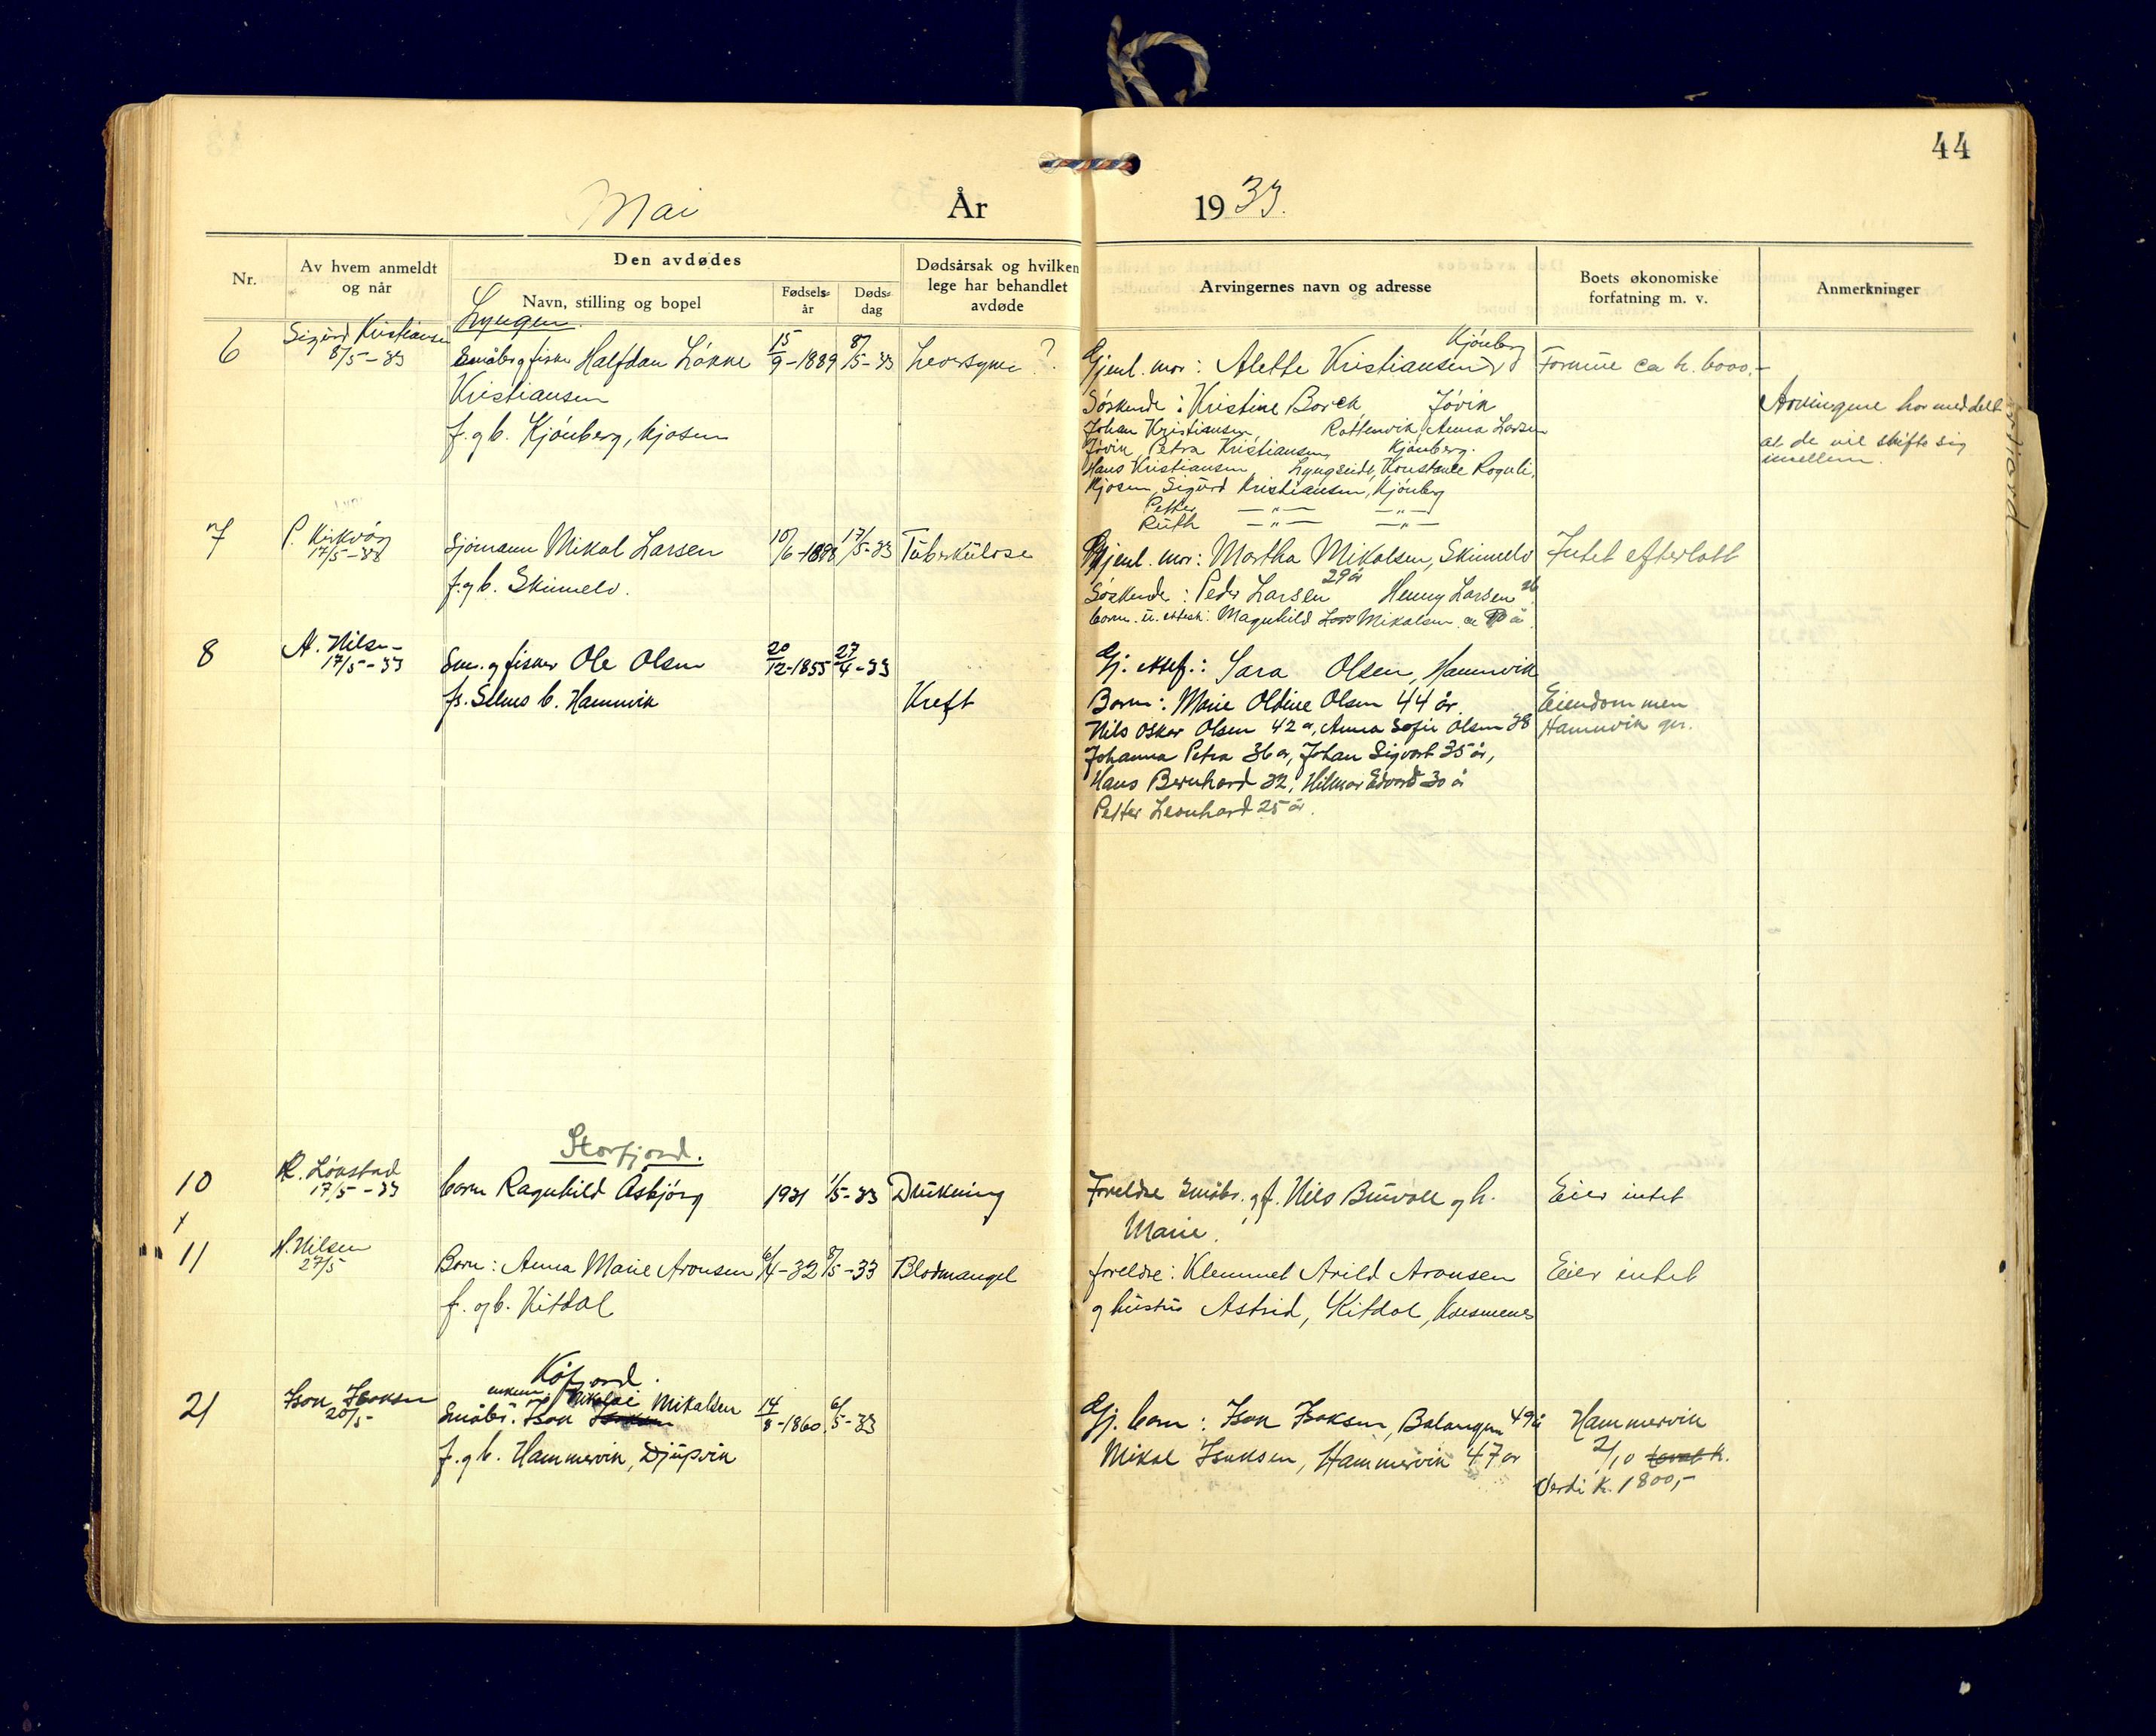 44
Mai År 1933.
Nr.
Av hvem anmeldt og når
Den avdødes
Navn, stilling og bopel
Fødselsår
Dødsdag
Dødsårsak og hvilken lege har behandlet avdøde
Arvingernes navn og adresse
Boets økonomiske forfatning m. v.
Anmerkninger
Lyngen.
6
Sigurd Kristiansen
8/5-33
Småbr. og fisker Halfdan Løkke
Kristiansen
f. og b. Kjónberg, Kjosen
15/9-1889
8/5-33
Leversyke ?
Gjenl. mor: Alette Kristiansen Kjónberg
Søskende: Kristine Borch, Jøvik
Johan Kristiansen, Rottenvik, Anna Larsen
Jøvik, Petra Kristiansen, Kjónberg.
Hans Kristiansen, Lyngseidt, Konstanse Rognli,
Kjosen, Sigurd Kristiansen, Kjónberg
Petter —„— —„—
Ruth —„— —„—
Formue ca kr. 6000,-
Arvingene har meddelt
at de vil skifte sig
imellem.
7
P. Kirkvåg
17/5-33
Sjömann Mikal Larsen
f. og b. Skinnelv.
10/6-1898
17/5-33
Tuberkulose
Gjenl. mor: Martha Mikalsen, Skinnelv
Søskende: Peder Larsen 29 år Henny Larsen 26
barn u. ektesk: Magnhild Mikalsen
Intet efterlatt
8
A. Nilsen
17/5-33
Sm. og fisker Ole Olsen
fs. Selnes b. Hamnvik
20/12-1855
27/4-33
Kreft
Gj. ektef.: Sara Olsen, Hamnvik
Barn: Marie Oldine Olsen 44 år.
Nils Oskar Olsen 42 år, Anna Sofie Olsen 38
Johanna Petra 36 år, Johan Sigvart 35 år,
Hans Bernhard 32, Hilmar Edvard 30 år
Petter Leonhard 25 år.
Eiendommen
Hamnvik gnr.
Storfjord.
10
R. Lønstad
17/5-33
barn Ragnhild Asbjörg
1931
1/5-33
Drukning
Foreldre småbr. og f. Nils Burvoll og h.
Marie.
Eier intet
x
11
H. Nilsen
27/5
Barn: Anna Marie Aronsen
f. og b. Kitdal
6/4-32
8/5-33
Blodmangel
foreldre: Klemmet Arild Aronsen
og hustru Astrid, Kitdal,
Eier intet
Kåfjord.
21
Isak Isaksen
20/5-
enkem. Nikolai Mikalsen
Småbr. Isak
f. og b. Hammervik, Djupvik
14/8-1860
6/5-33
Gj. barn: Isak Isaksen, Balangen 49 år
Mikal Isaksen, Hammervik 47 år
Hammervik
2/10
Verdi k. 1800,-